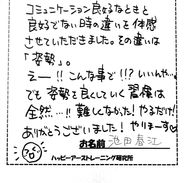 コミュニケーション良好なときと
良好でない時の違いを体感
させていただきました。その違いは
「姿勢」。
えー!! こんな事で!!? いいんや…
でも姿勢を良くしていく習慣は
全然…!! 難しくなかった! やるだけ!
ありがとうございました! やりまーす♡
お名前 池田春江
ハッピーアーストレーニング研究所